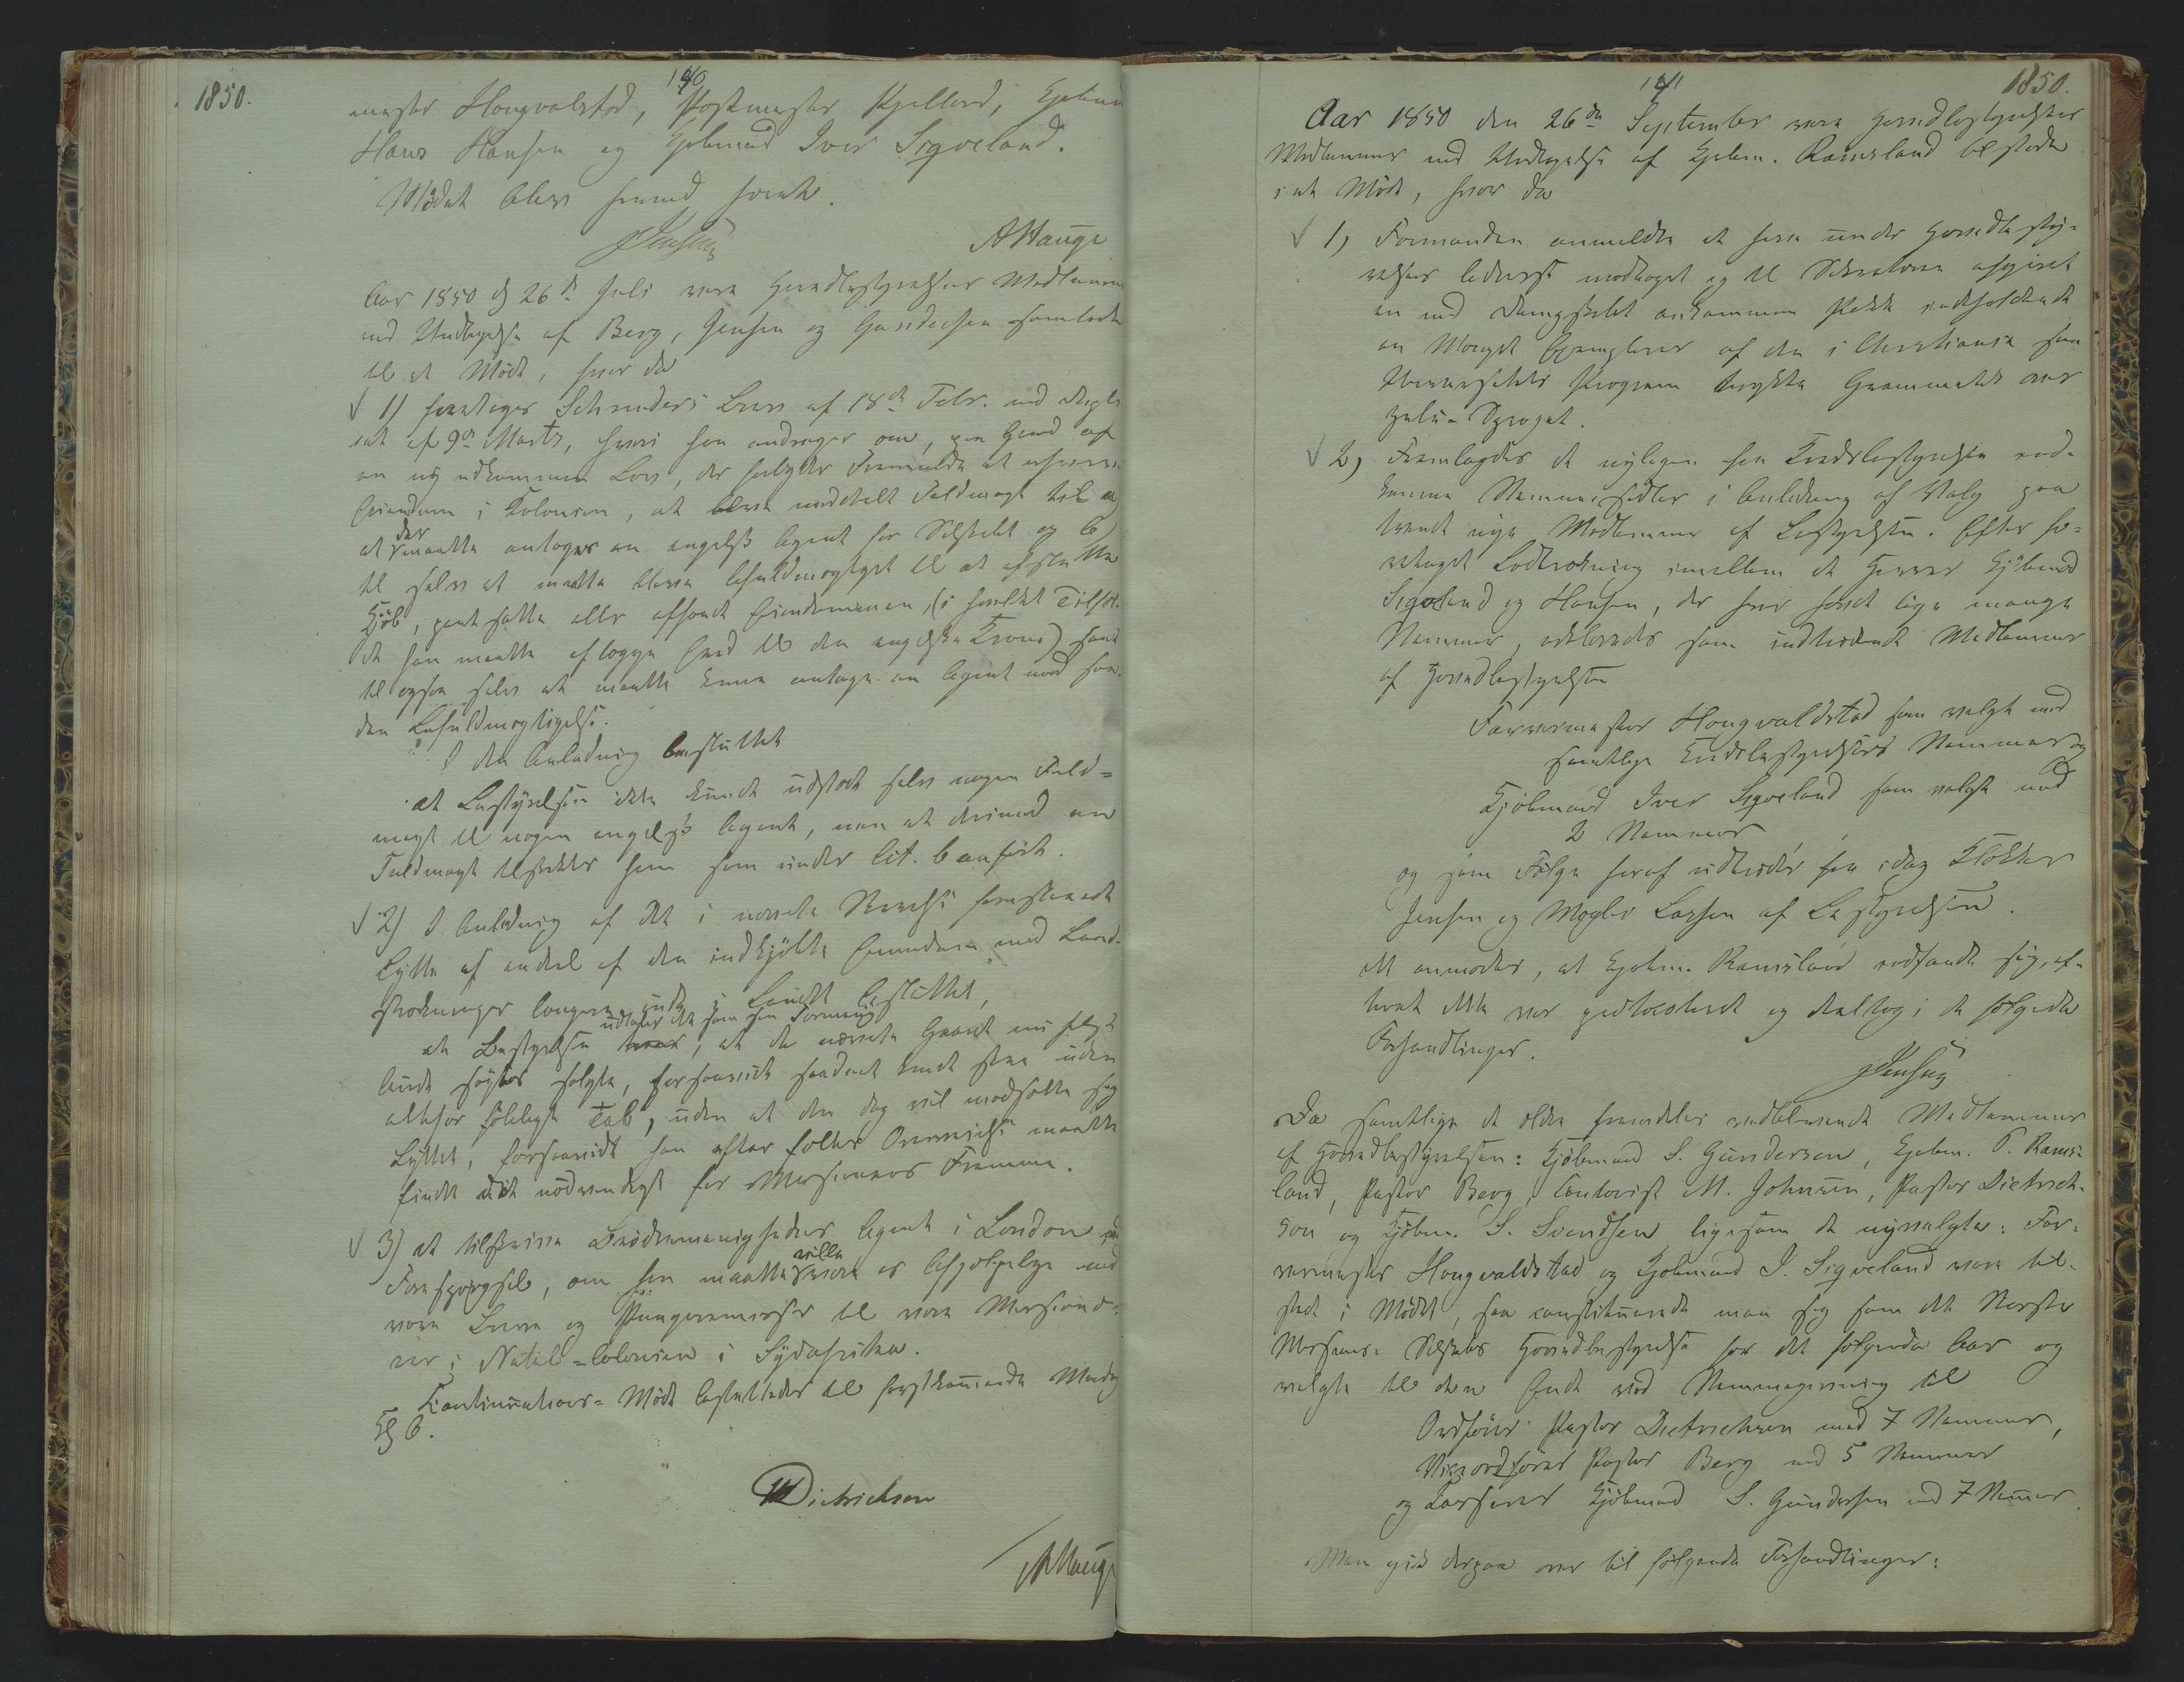 1850.
140
mester Hougvalstad, Postmester Kjelland, Kjøbm
Hans Hansen og Kjøbmand Iver Sigveland.
Mödet blev hermed hævet.
Jensen
AHauge
Aar 1850 d 26de Juli vare Hovedbestyrelsens Medlemmer
med Undtagelse af Berg, Jensen og Gundersen samlede
til et Möde, hvor da
1) foretoges Schreuders Brev af 18de Febr. med Duplicat
af 9de Marts, hvori han andrager om, paa Grund af
en ny udkommen Lov, der forbyder Fremmede at erhverve
Eiendom i Kolonien, at blive meddelt Fuldmagt til a)
at der maatte antages en engelsk Agent for Selskabet og b)
til selv at maatte blive befuldmægtiget til at afslutte
Kjöb, pantsætte eller afhænde Eiendommen, (i hvilket Tilfælde
han maatte aflægge Eed til den engelske Krone) samt
til ogsaa selv at maatte kunne antage en Agent med saadan
Befuldmægtigelse.
I den Anledning besluttet
at Bestyrelsen ikke kunde udstede selv nogen Fuldmagt
til nogen engelsk Agent, men at derimod en
Fuldmagt tilstilles ham som under lit. b anført.
2) I Anledning af det i nævnte Skrivelse foreslaaede
Bytte af endel af den indkjöbte Eiendom med Landstrækninger
længere inde i Landet besluttet,
at Bestyrelsen udtaler det som sin Formening, at de nævnte Gaarde nu helst
burde söges solgte, forsaavidt saadant kunde skee uden
altfor föleligt Tab, uden at den dog vil modsætte sig
Byttet, forsaavidt han efter fælles Overveielse maatte
finde det nödvendigt for Missionens Fremme.
3) at tilskrive Brödremenighedens Agent i London med
Forespørgsel, om han maatte ville være os behjælpelig med
vore Breve og Pengeremisser til vore Missionærer
i Natal-Colonien i Sydafrika.
Continuations-Möde besluttedes til førstkommende Mandag
Kl 6.
WDietrichson
AHauge
141
1850.
Aar 1850 den 26de September vare Hovedbestyrelsens
Medlemmer med Undtagelse af Kjøbm. Ramsland tilstede
i et Möde, hvor da
1) Formanden anmeldte at have under Hovedbestyrelsens
 modtaget og til Sekretæren afgivet
en med Dampskibet ankommen Pakke indeholdende
en Mængde Exemplarer af den i Christiania som
Universitets Program trykte Grammatik over
Zulu-Sproget.
2) Fremlagdes de nylagen fra Kredsbestyrelsen indkomne
Stemmesedler i Anledning af Valg paa
tvende nye Medlemmer af Bestyrelsen. Efter foretaget
Lodtrækning imellem de Herrer Kjöbmænd
Sigveland og Hansen, der hver havde lige mange
Stemmer, erklæredes som indtrædende Medlemmer
af Hovedbestyrelsen
Farvermester Hougvaldstad som valgt med
samtlige Kredsbestyrelsers Stemmer og
Kjöbmand Iver Sigveland som valgt med
2 Stemmer
og som Følge heraf udtræder fra idag Klokker
Jensen og Mægler Larsen af Bestyrelsen.
Det anmærkes, at Kjøbm. Ramsland indfandt sig, efterat
dette var protocolleret og deeltog i de følgende
Forhandlinger.
Jensen
Da samtlige de ældre fremdeles vedblivende Medlemmer
af Hovedbestyrelsen: Kjöbmand S. Gundersen, Kjøbm. P. Ramsland,
Pastor Berg, Contorist M. Johnsen, Pastor Dietrichson
og Kjöbm. S. Svendsen ligesom de nyvalgte: Farvermester
Hougvaldstad og Kjøbmand I. Sigveland vare tilstede
i Mödet, saa constituerede man sig som det Norske
Missions-Selskabs Hovedbestyrelse for det følgende Aar og
valgte til den Ende ved Stemmegivning til
Ordförer Pastor Dietrichson med 7 Stemmer,
Viceordförer Pastor Berg med 5 Stemmer
og Kasserer Kjöbmand S. Gundersen med 7 Stemmer.
Man gik derpaa over til følgende Forhandlinger: